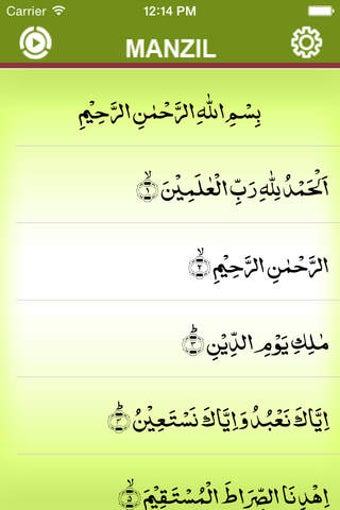 Carrier 12:14 PM
MANZIL
بِسْمِ اللّٰهِ الرَّحْمٰنِ الرَّحِيْمِ
اَلْحَمْدُ لِلّٰهِ رَبِّ الْعٰلَمِيْنَ ۙ‏﴿۱﴾
الرَّحْمٰنِ الرَّحِيْمِ ۙ‏﴿۲﴾
مٰلِكِ يَوْمِ الدِّيْنِ ؕ‏﴿۳﴾
اِيَّاكَ نَعْبُدُ وَاِيَّاكَ نَسْتَعِيْنُ ؕ‏﴿۴﴾
اِهْدِنَا الصِّرَاطَ الْمُسْتَقِيْمَ ۙ‏﴿۵﴾